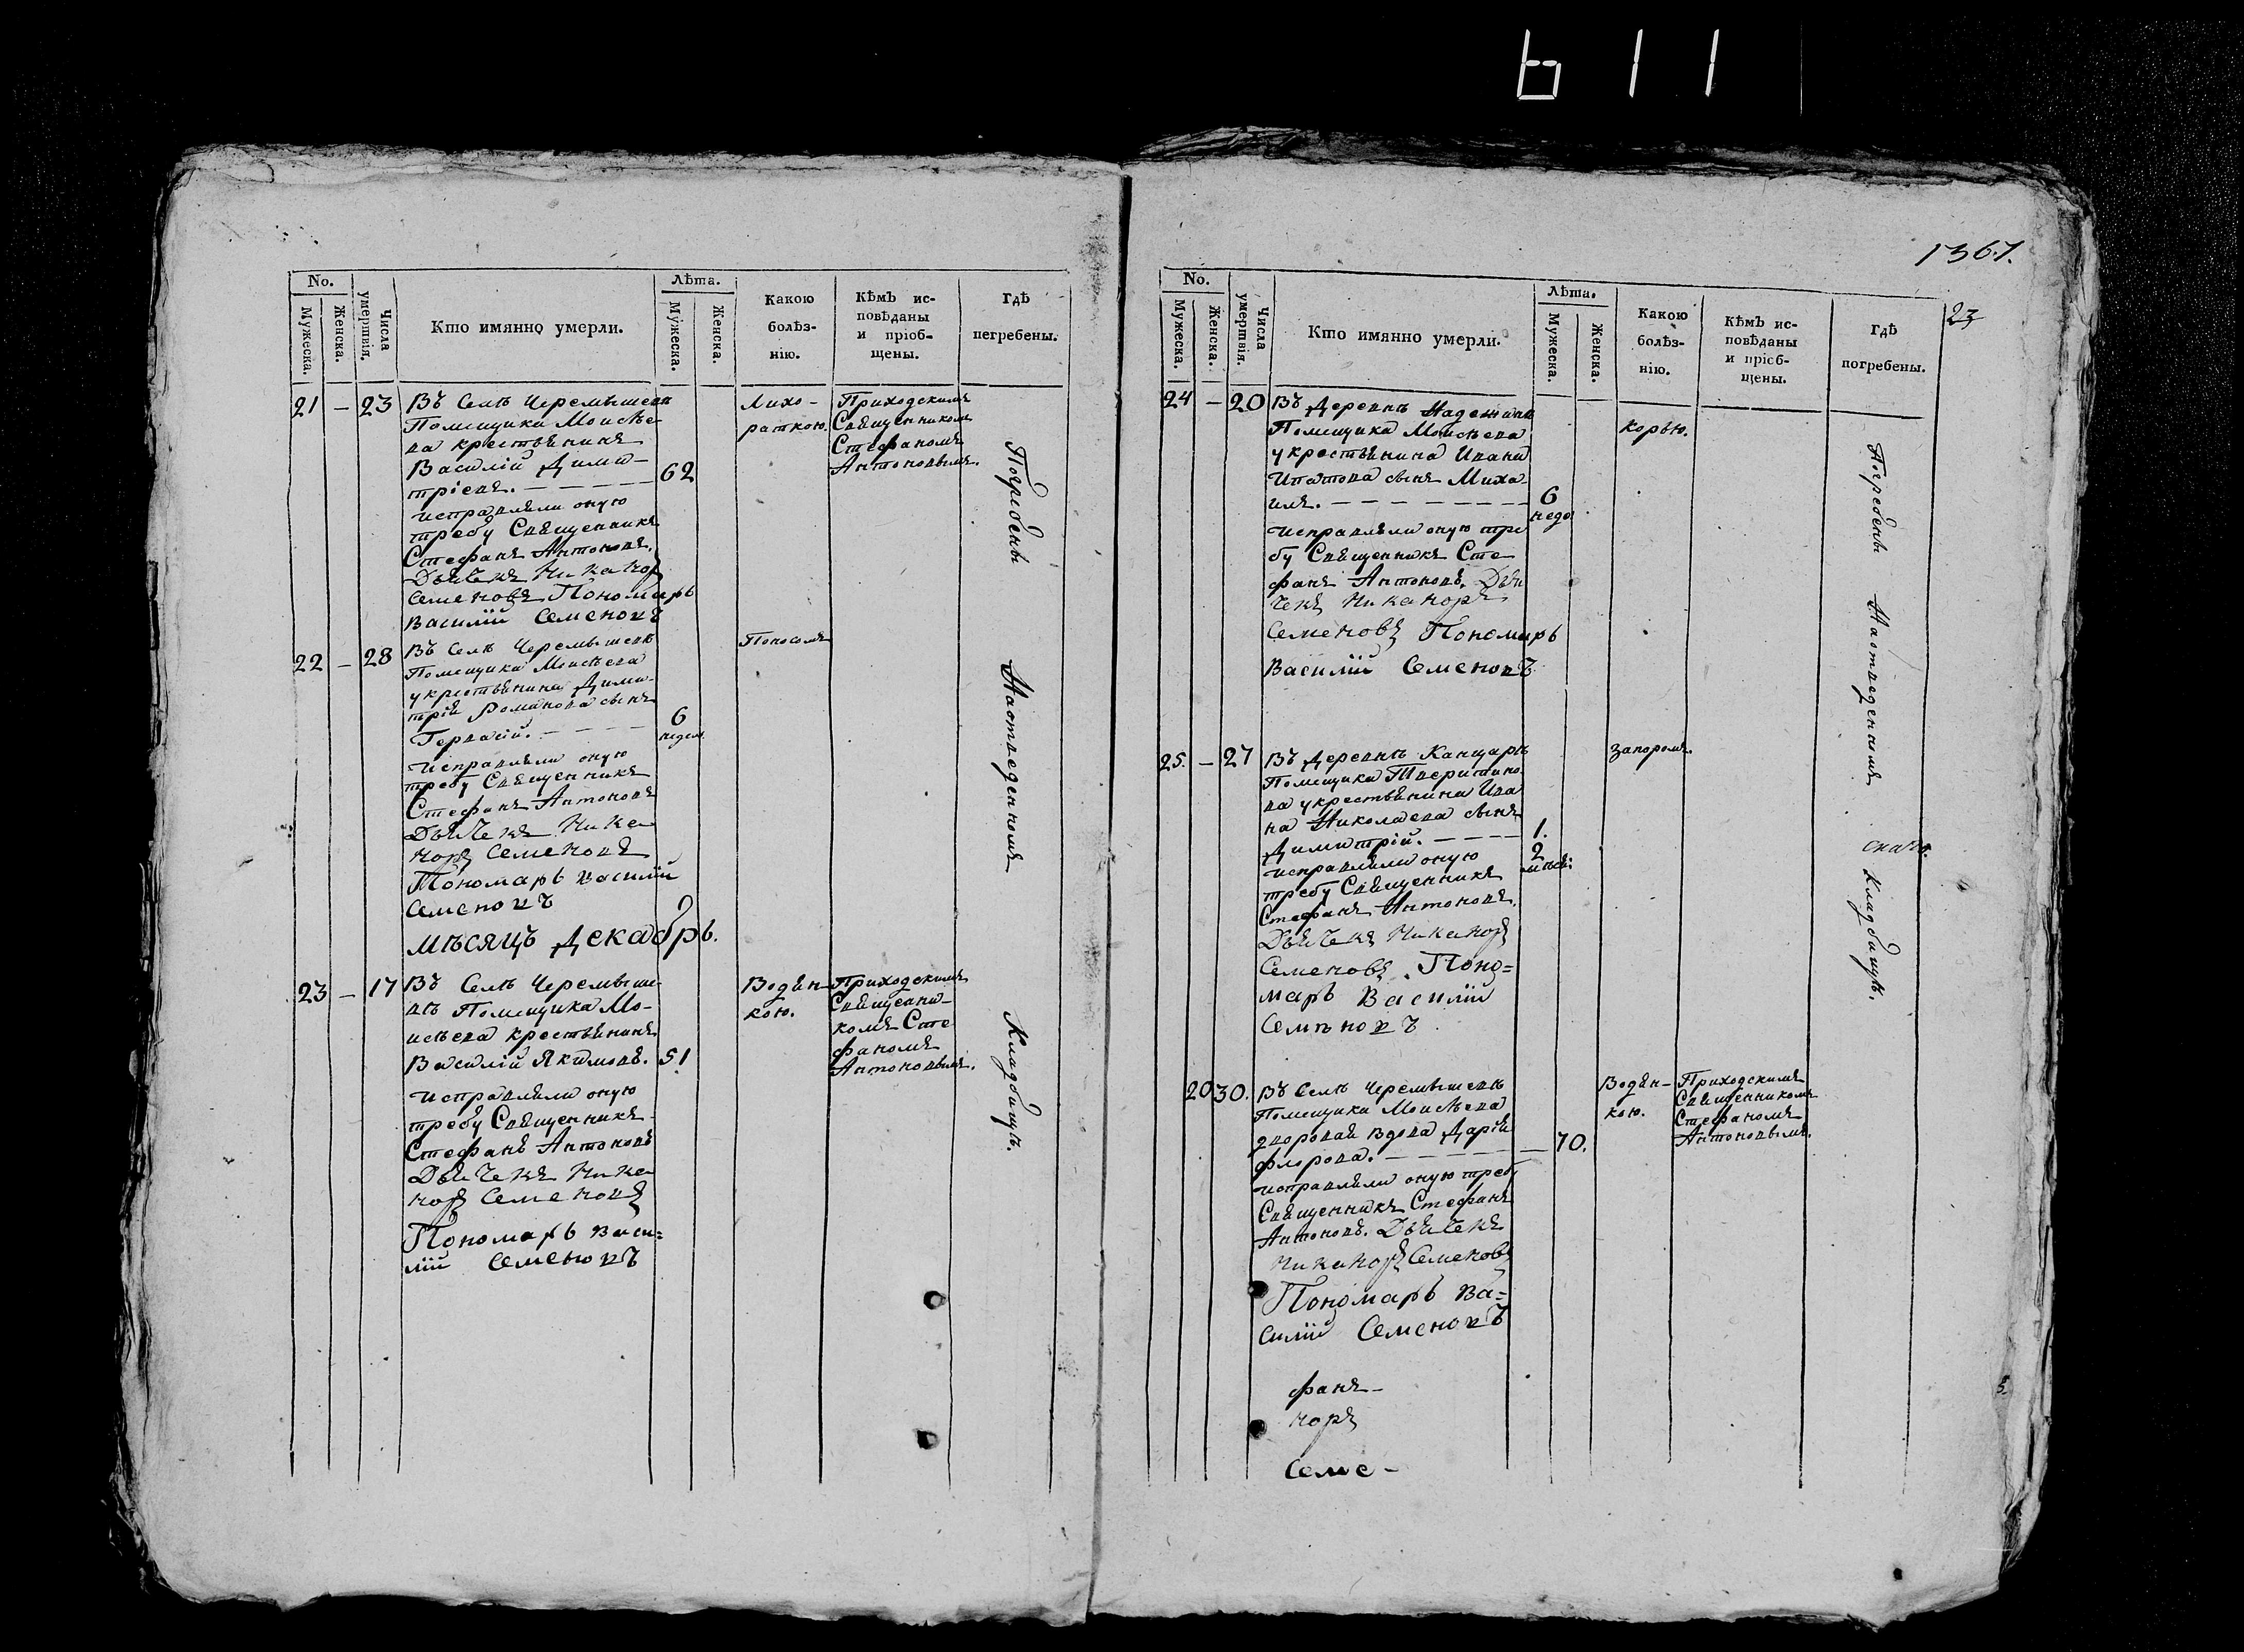 611
No.
Мужеска.
Женска.
Числа умертвія.
Кто имянно умерли.
Лѣта.
Мужеска.
Женска.
Какою
болѣз-
нію.
Кѣмъ ис-
повѣданы
и пріоб-
щены.
Гдѣ
погребены.
21 – 23 Въ Селѣ Черемышевѣ
Помещика Моисѣе-
ва крестьянинъ
Василій Дими-
тріевъ. 62
исправляли оную
требу Священникъ
Стефанъ Антоновъ.
Дьячекъ Никаноръ
Семеновъ Пономарь
Василій Семеновъ
Лихо-
раткою.
Приходскимъ
Священникомъ
Стефаномъ
Антоновымъ.
22 – 28 Въ Селѣ Черемышевѣ
Помещика Моисѣева
у крестьянина Дими-
трія Романова сынъ
Гервасій. 6
недел
исправляли оную
требу Священникъ
Стефанъ Антоновъ
Дьячекъ Ника
норъ Семеновъ
Пономарь Василій
Семеновъ
Поносомъ
мѣсяцъ Декабрь.
23 – 17 Въ Селѣ Черемыше-
вѣ Помещика Мо-
исѣева крестьянинъ
Василій Якимовъ. 51
исправляли оную
требу Священникъ
Стефанъ Антоновъ
Дьячекъ Ника
норъ Семеновъ
Пономарь Васи=
лій Семеновъ
Водян-
кою.
Приходскимъ
Священни-
комъ Сте
фаномъ
Антоновымъ.
Погребены На отведенномъ Кладбищѣ.
1367.
23
No.
Мужеска.
Женска.
Числа умертвія.
Кто имянно умерли.
Лѣта.
Мужеска.
Женска.
Какою
болѣз-
нію.
Кѣмъ ис-
повѣданы
и пріоб-
щены.
Гдѣ
погребены.
24 – 20 Въ Деревнѣ
Помещика Моисѣева
у крестьянина Ивана
Ипатова сынъ Миха-
илъ. 6
неде
исправляли оную тре
бу Священникъ Сте
фанъ Антоновъ. Дья
чекъ Никаноръ
Семеновъ Пономарь
Василій Семеновъ
Корью.
25. – 27 Въ Деревнѣ
Помещика Тверитино
ва у крестьянина Ива
на Николаева сынъ
Димитрій. 1.
2
исправляли оную
требу Священникъ
Стефанъ Антоновъ.
Дьячекъ Никаноръ
Семеновъ. Поно=
марь Василій
Семѣновъ
Запоромъ.
20 30. Въ Селѣ Черемышевѣ
Помещика Моисѣева
дворовая вдова Дарія
Флорова. 70.
исправляли оную требу
Священникъ Стефанъ
Антоновъ. Дьячекъ
Никаноръ Семеновъ
Пономарь Ва=
силій Семеновъ
Водян-
кою.
Приходскимъ
Священникомъ
Стефаномъ
Антоновымъ.
фанъ-
норъ
Семе-
Погребены На отведенномъ
Кладбищѣ.